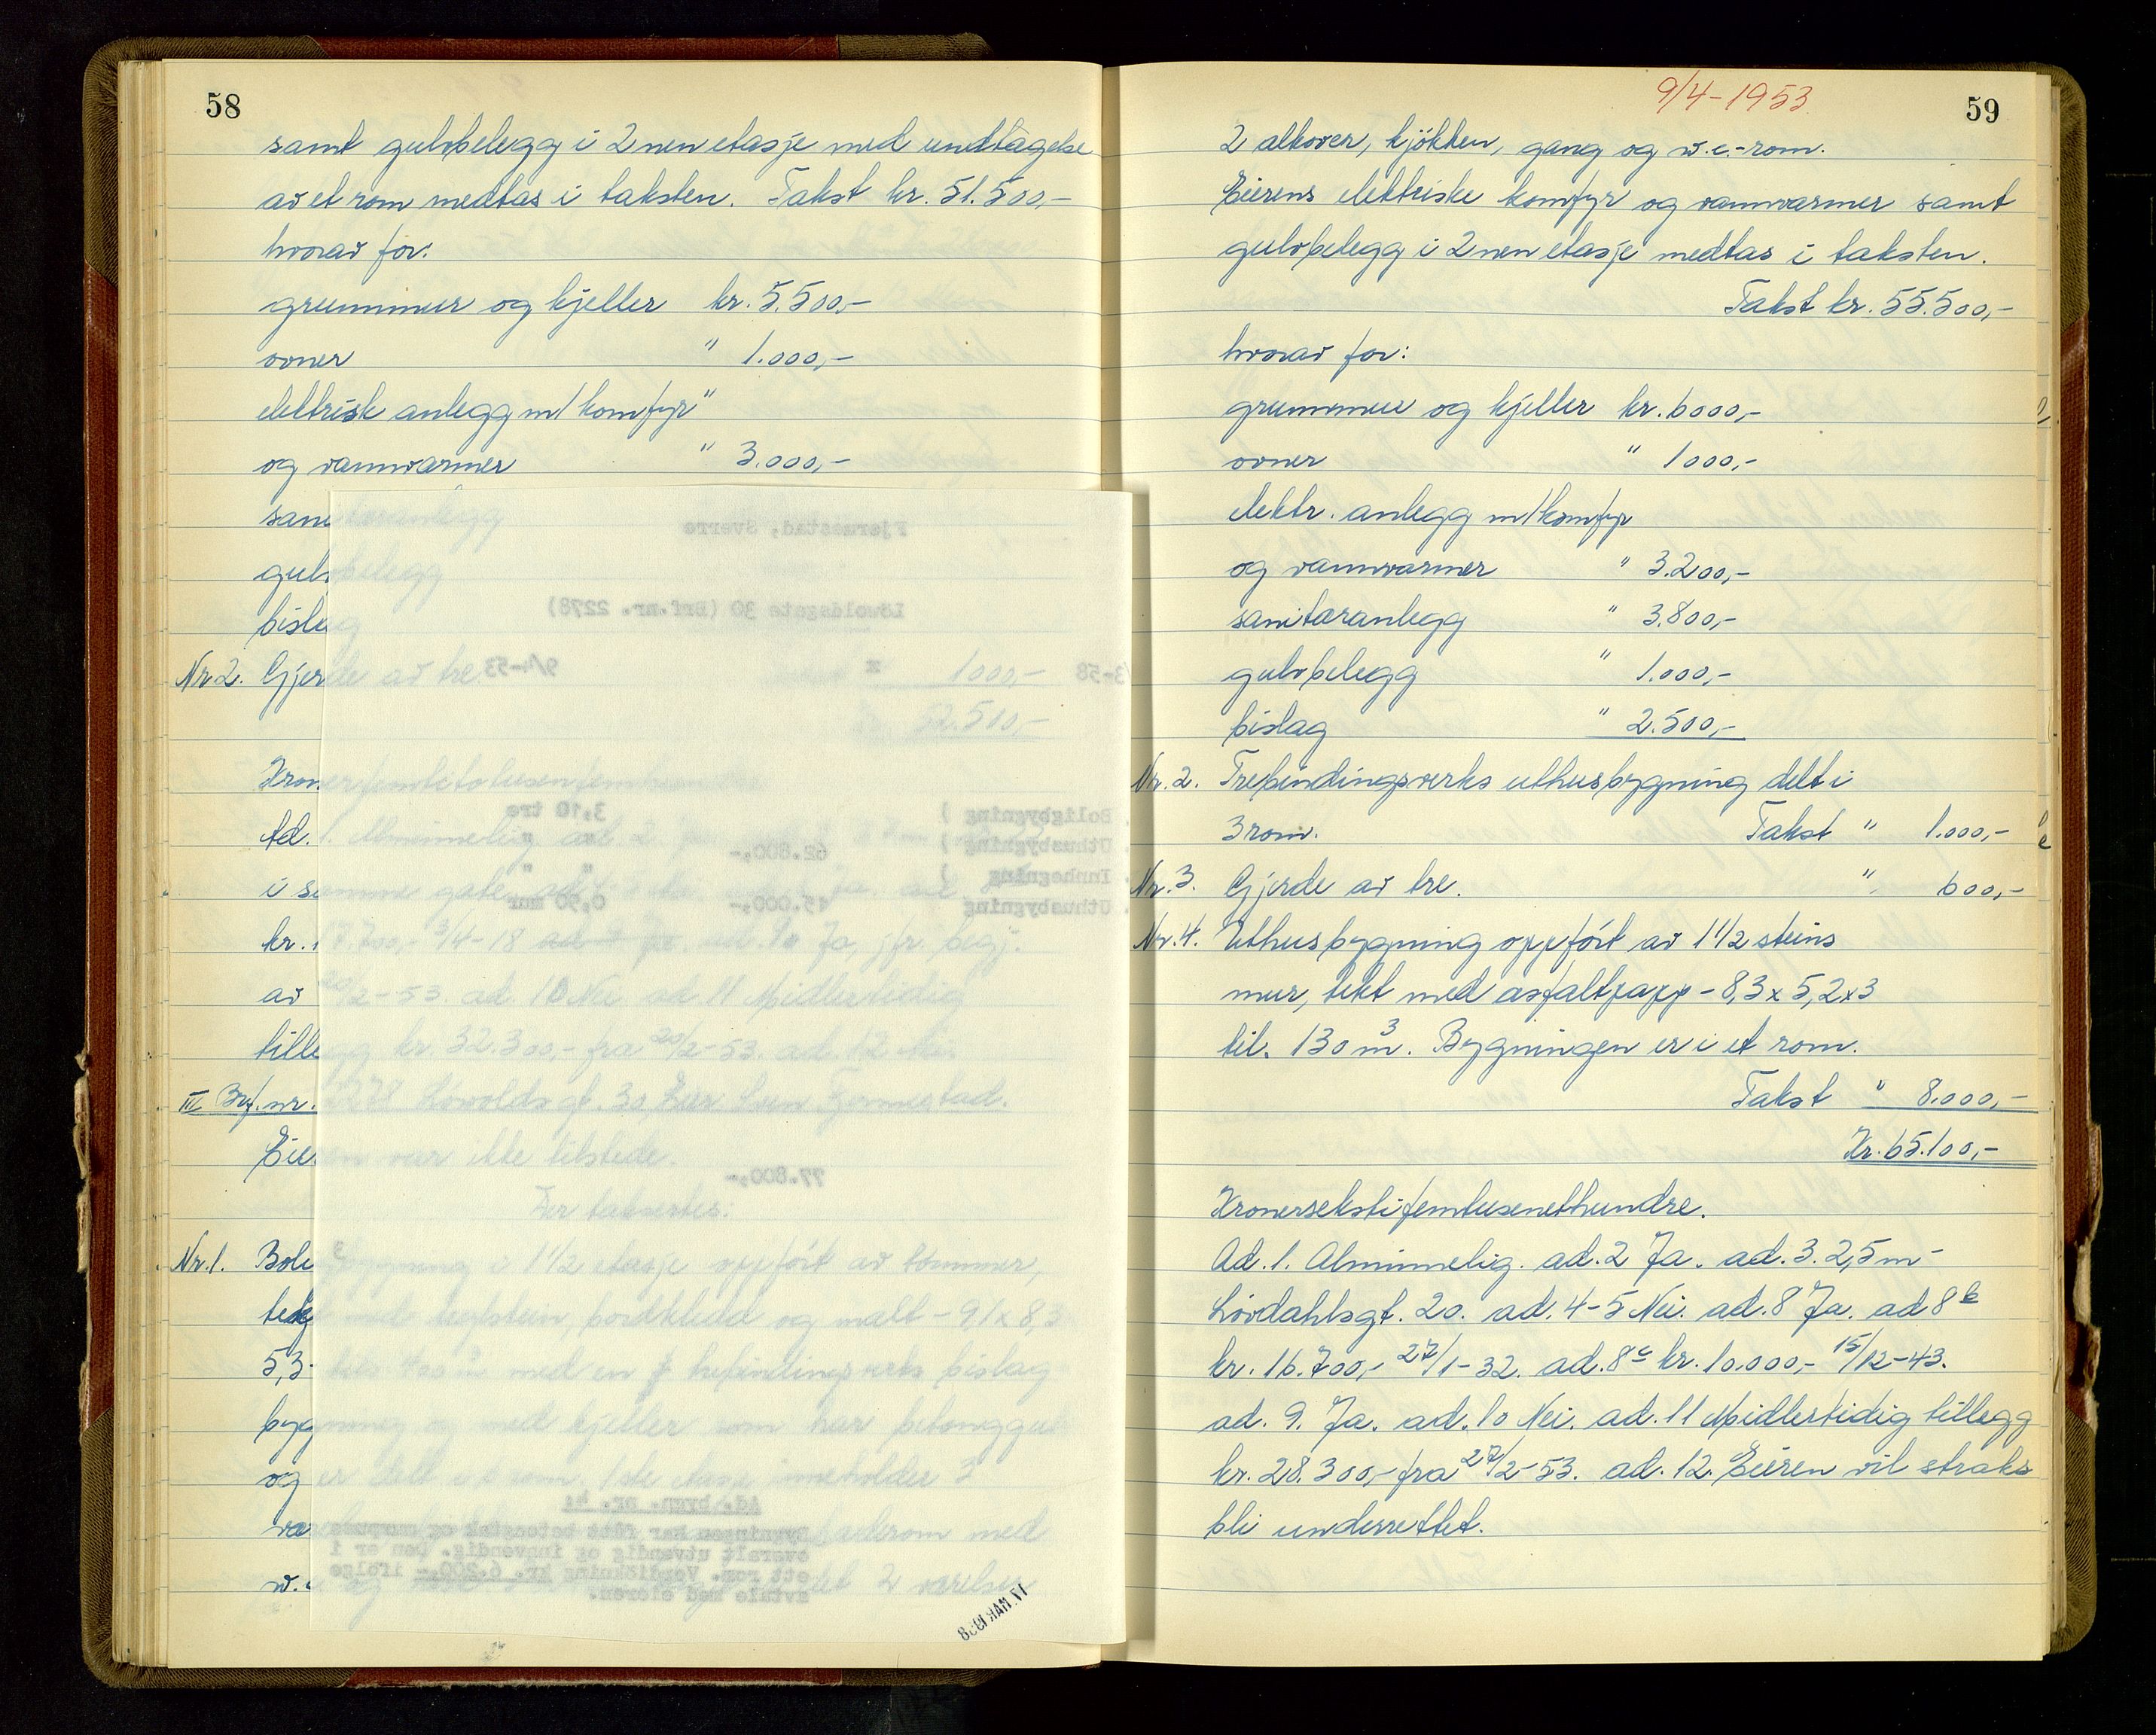 58
samt gulvbelegg i 2nen etasje med undtagelse
av et rom medtas i taksten. Takst kr. 51.500,-
hvorav for:
grunnmur og kjeller kr. 5.500,-
ovner " 1.000,-
elektrisk anlegg m/komfyr"
og vannvarmer " 3.000,-
sanitæranlegg
gulvbelegg
bislag
Nr 2. Gjerde av tre. 1000,-
52.500,-
Kroner femtitotusenfem
Ad. 1. Alminnelig ad. 2
i samme gate. ad.
kr. 17.700,- 3/4-18 ad. 9 Ja, jfr. begj.
av 20/2-53. ad. 10 Nei ad. 11 Midlertidig
tillegg kr. 32.300,- fra 20/2-53. ad. 12 Nei.
III Brf. nr. 2278 Lövoldsgt. 30, Eier Fjermestad.
Eieren var ikke tilstede.
Før taksertes:
Nr. 1. Boligbygning i 1 1/2 etasje oppfört av tömmer,
tekt med teglstein, bordkledd og malt - 9,1 x 8,3
5,3 til. 400 m3 med en trebindingsverks bislag
bygning og med kjeller som har betonggulv
og er delt i 6 rom. 1ste etasje inneholder 3
baderom med
w.c. og 2 værelser
Fjermestad, Sverre
Lövoldsgate 30 (Brf.nr. 2278)
9/4-53 x /3-58
Boligbygning ) 3,10 tre
Uthusbygning ) 62.800,- " "
Innhegning ) " "
Uthusbygning 15.000,- 0,90 mur
77.800,-
Ad. bygn. nr. 4:
Bygningen har fått betongtak og murpuss
overalt utvendig og innvendig. Den er i
ett rom. Verdiökning kr. 6.200,- ifölge
avtale med eieren.
17. MAR 1958
9/4-1953
59
2 alkover, kjökken, gang og w.c.-rom.
Eierens elektriske komfyr og vannvarmer samt
gulvbelegg i 2nen etasje medtas i taksten.
Takst kr. 55.500,-
hvorav for:
grunnmur og kjeller kr. 6000,-
ovner " 1000,-
elektr. anlegg m/komfyr
og vannvarmer " 3.200,-
sanitæranlegg " 3.800,-
gulvbelegg " 1.000,-
bislag " 2.500,-
Nr. 2. Trebindingsverks uthusbygning delt i
3 rom. Takst " 1.000,-
Nr. 3. Gjerde av tre. " 600,-
Nr. 4. Uthusbygning oppfört av 1 1/2 steins
mur, tekt med asfaltpapp - 8,3 x 5,2 x 3
til. 130 m3. Bygningen er i et rom.
Takst " 8.000,-
Kr. 65.100,-
Kronersekstifemtusenethundre.
Ad. 1. Alminnelig. ad. 2 Ja. ad. 3. 2,5 m -
Lövdahlsgt. 20. ad. 4-5 Nei. ad. 8 Ja. ad 8 b
kr. 16.700,- 27/1-32. ad. 8 c kr. 10.000,- 15/12-43.
ad. 9. Ja. ad. 10 Nei. ad. 11 Midlertidig tillegg
kr. 28.300,- fra 27/2-53. ad. 12. Eieren vil straks
bli underrettet.